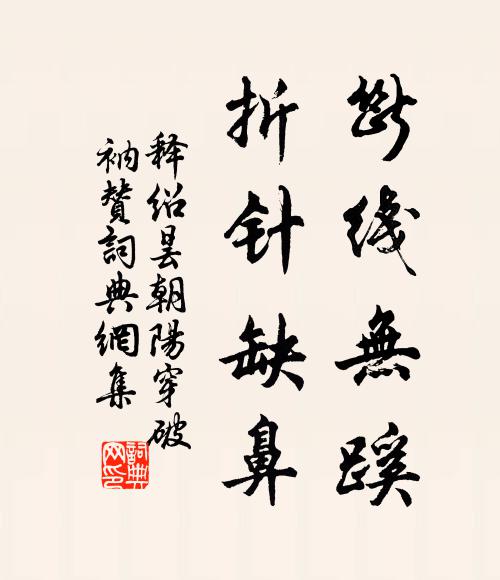 断线無蹊
折针缺鼻
释绍昙朝陽穿破
衲赞詞典網集
詞典
网印